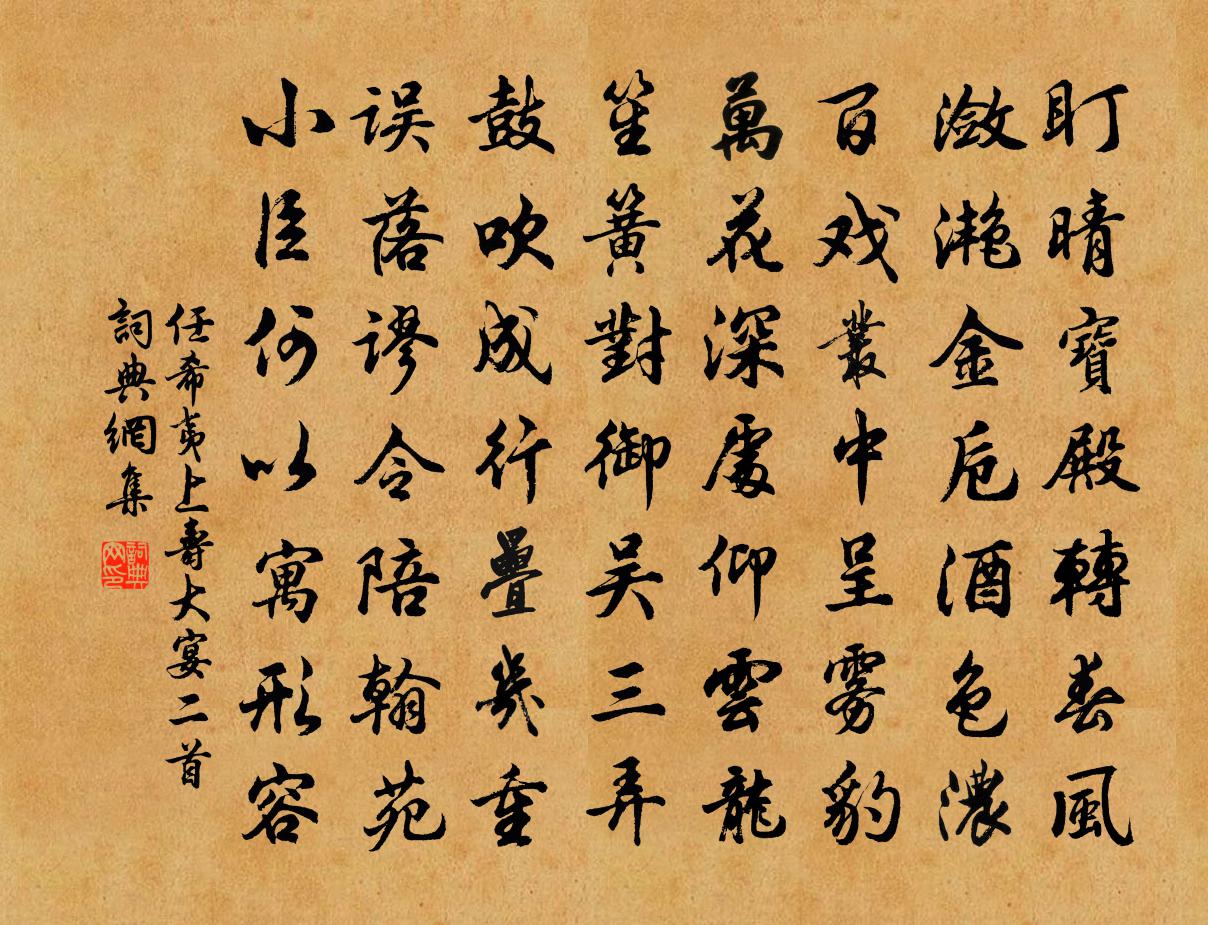 盯晴寶殿轉春風
潋滟金卮酒色濃
百戏叢中呈雾豹
萬花深處仰雲龍
笙簧對御吴三弄
鼓吹成行疊幾重
误落谬令陪翰苑
小臣何以寓形容
任希夷上壽大宴二首
詞典網集
詞典网印